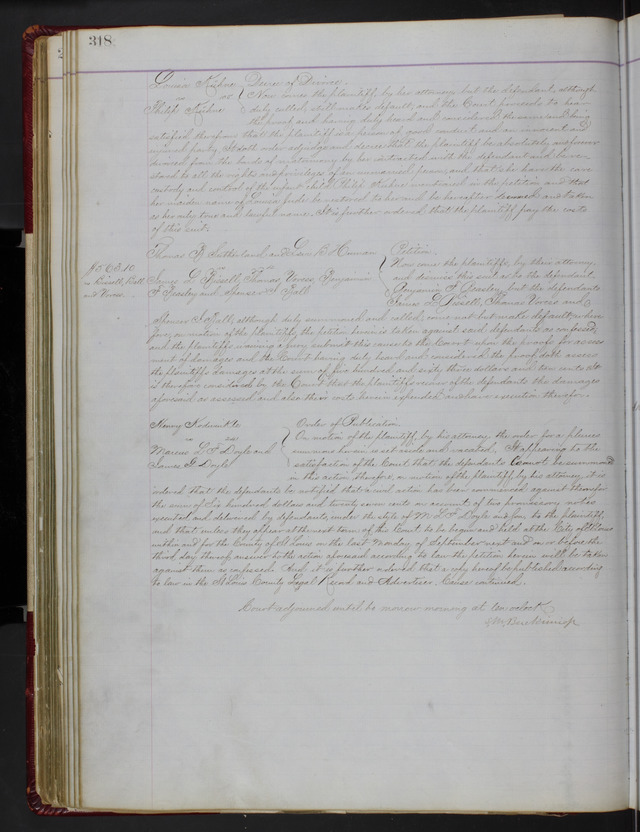 318
Louisa Kuhne Decree of Divorce.
vs Now comes the plaintiff, by her attorney, but the defendant, although
Philip Kuhne duly called, still makes default, and the Court proceeds to hear
the proof and having duly heard and considered the same and being
satisfied therefrom that the plaintiff is a person of good conduct and an innocent and
injured party, It doth order adjudge and decree that the plaintiff be absolutely and forever
divorced from the bonds of matrimony by her contracted with the defendant and be
stored to all the rights and privileges of an unmarried person; and that she have the care
custody and control of the infant child Philip Kuhne mentioned in the petition and that
her maiden name of Louisa be restored to her and be hereafter and taken
as her only true and lawful name. It is further ordered that the plaintiff pay the costs
of this suit.
Thomas H. Sutherland and B. Petition.
vs Now come the plaintiffs, by their attorney,
$563.10 James L. Thomas Benjamin and dismiss this suit as to the defendant
vs. Ball F. Beasley and Spencer S. Ball Benjamin F. Beasley, but the defendants
and James L. Thomas and
Spencer S. Ball, although duly summoned and called, come not but make default; where
fore, on motion of the plaintiffs, the petition herein is taken against said defendants as confessed,
and the plaintiffs waiving a jury submit this cause to the Court upon the proofs for assess
ment of damages and the Court having duly heard and considered the proof, doth assess
the plaintiffs damages at the sum of five hundred and sixty three dollars and ten cents. It
is therefore considered by the Court that the plaintiffs recover of the defendants the damages
aforesaid as assessed and also their costs herein expended and have execution therefor.
Henry Order of Publication
vs On motion of the plaintiff, by his attorney the order for a pluries
Marcus L. F. Doyle and summons herein is set aside and vacated. It appearing to the
James G. Doyle satisfaction of the Court that the defendants cannot be summoned
in this action, therefore, on motion of the plaintiff, by his attorney, it is
ordered that the defendants be notified that a civil action has been commenced against them for
the sum of six hundred dollars and twenty seven cents on account of two promissory notes
executed and delivered by defendants, under the style of M. L. F. Doyle and son, to the plaintiff,
and that unless they appear at the next term of the Court to be begun and held at the City of St. Louis
within and for the County of St. Louis on the last Monday of September next and on or before the
third day thereof answer to the action aforesaid according to law the petition herein will be taken
against them as confessed. And it is further ordered that a copy hereof be published according
to law in the St. Louis County Legal Record and Advertiser. Cause continued.
Court adjourned until to morrow morning at ten oclock